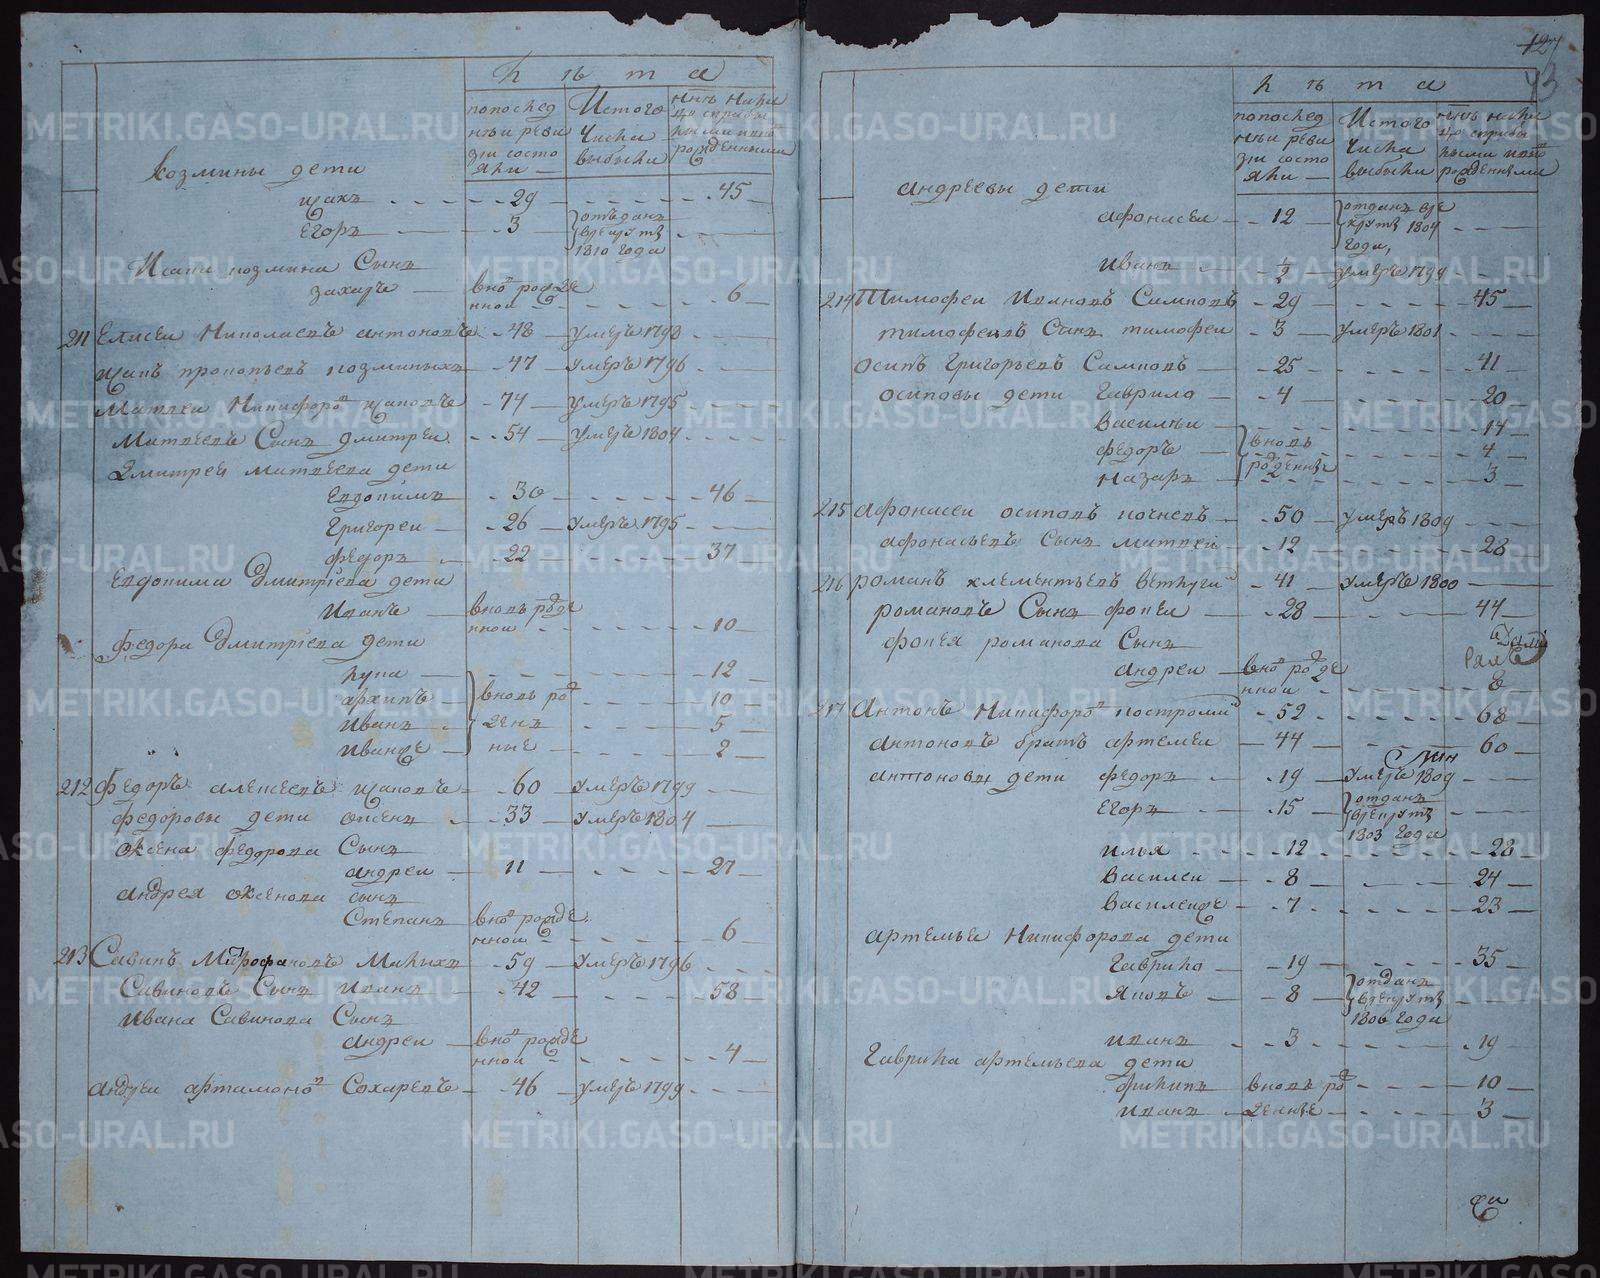 лѣта
попослед
нѣи реви
зіи состо
яли
Истого
числа
выбыли
нынѣ нали
цо
рожденными
Козмины дети
исакъ 29 45
Егоръ 3 отъданъ
врекруты
1810 года
Исака козмина Сынъ
захаръ вно рожде 6
нной
211 Елисеи Николаевъ антоновъ 48 умеръ 1798
прокопьевъ козминыхъ 47 умеръ 1796
Матвеи Никифоров 74 умеръ 1795
Матвеевъ Сынъ дмитреи 54 умеръ 1804
Дмитрея матвеева дети
Евдокимъ 30 46
Григореи 26 умеръ 1795
федоръ 22 37
Евдокима Дмитріева дети
Иванъ вновь рожде
нной 10
федора Дмитріева дети
лука 12
архипъ вновь рож 10
Иванъ ден 5
Иванъ же ные 2
212 Федоръ алексеевъ 60 умеръ 1799
федоровы дети оксенъ 33 умеръ 1804
оксена федорова Сынъ
андреи 11 27
андрея оксенова сынъ
Степанъ вно рожде
нной 6
213 Савинъ Митрофановъ Малихъ 59 умеръ 1796
Савиновъ Сынъ Иванъ 42 58
Ивана Савинова Сынъ
андреи вно рожде
нной 4
андреи артамонов Сохаревъ 46 умеръ 1799
127
43
лѣта
попослед
нѣи реви
зіи состо
яли
Истого
числа
выбыли
нынѣ нали
цо
рожденными
андреевы дети
афонасеи 12 отданъ вре
круты 1804
года
Иванъ 1/2 умеръ 1799
214 Тимофеи Ивановъ Симновъ 29 45
тимофеевъ Сынъ тимофеи 3 умеръ 1801
осипъ Григорьевъ Симновъ 25 41
осиповы дети Гаврило 4 20
Василеи 14
федоръ вновь 4
Назаръ рожденные 3
215 афонасеи осиповъ кочневъ 50 умеръ 1809
афонасьевъ Сынъ матвеи 12 28
216 романъ клементьевъ ветлуги 41 умеръ 1800
романовъ Сынъ фокеи 28 44
фокея романова Сынъ
андреи вно рожде
нной 8
217 Антонъ Никифоров костроми 52 68
антоновъ братъ артемеи 44 60
антоновы дети федоръ 19 умеръ 1809
Егоръ 15 отданъ
врекруты
1803 года
илья 12 28
Василеи 8 24
Василеи же 7 23
артемья Никифорова дети
Гаврила 19 35
Яковъ 8 отданъ
врекруты
1806 года
иванъ 3 19
Гаврила артемьева дети
филипъ вновь рож 10
иванъ денные 3